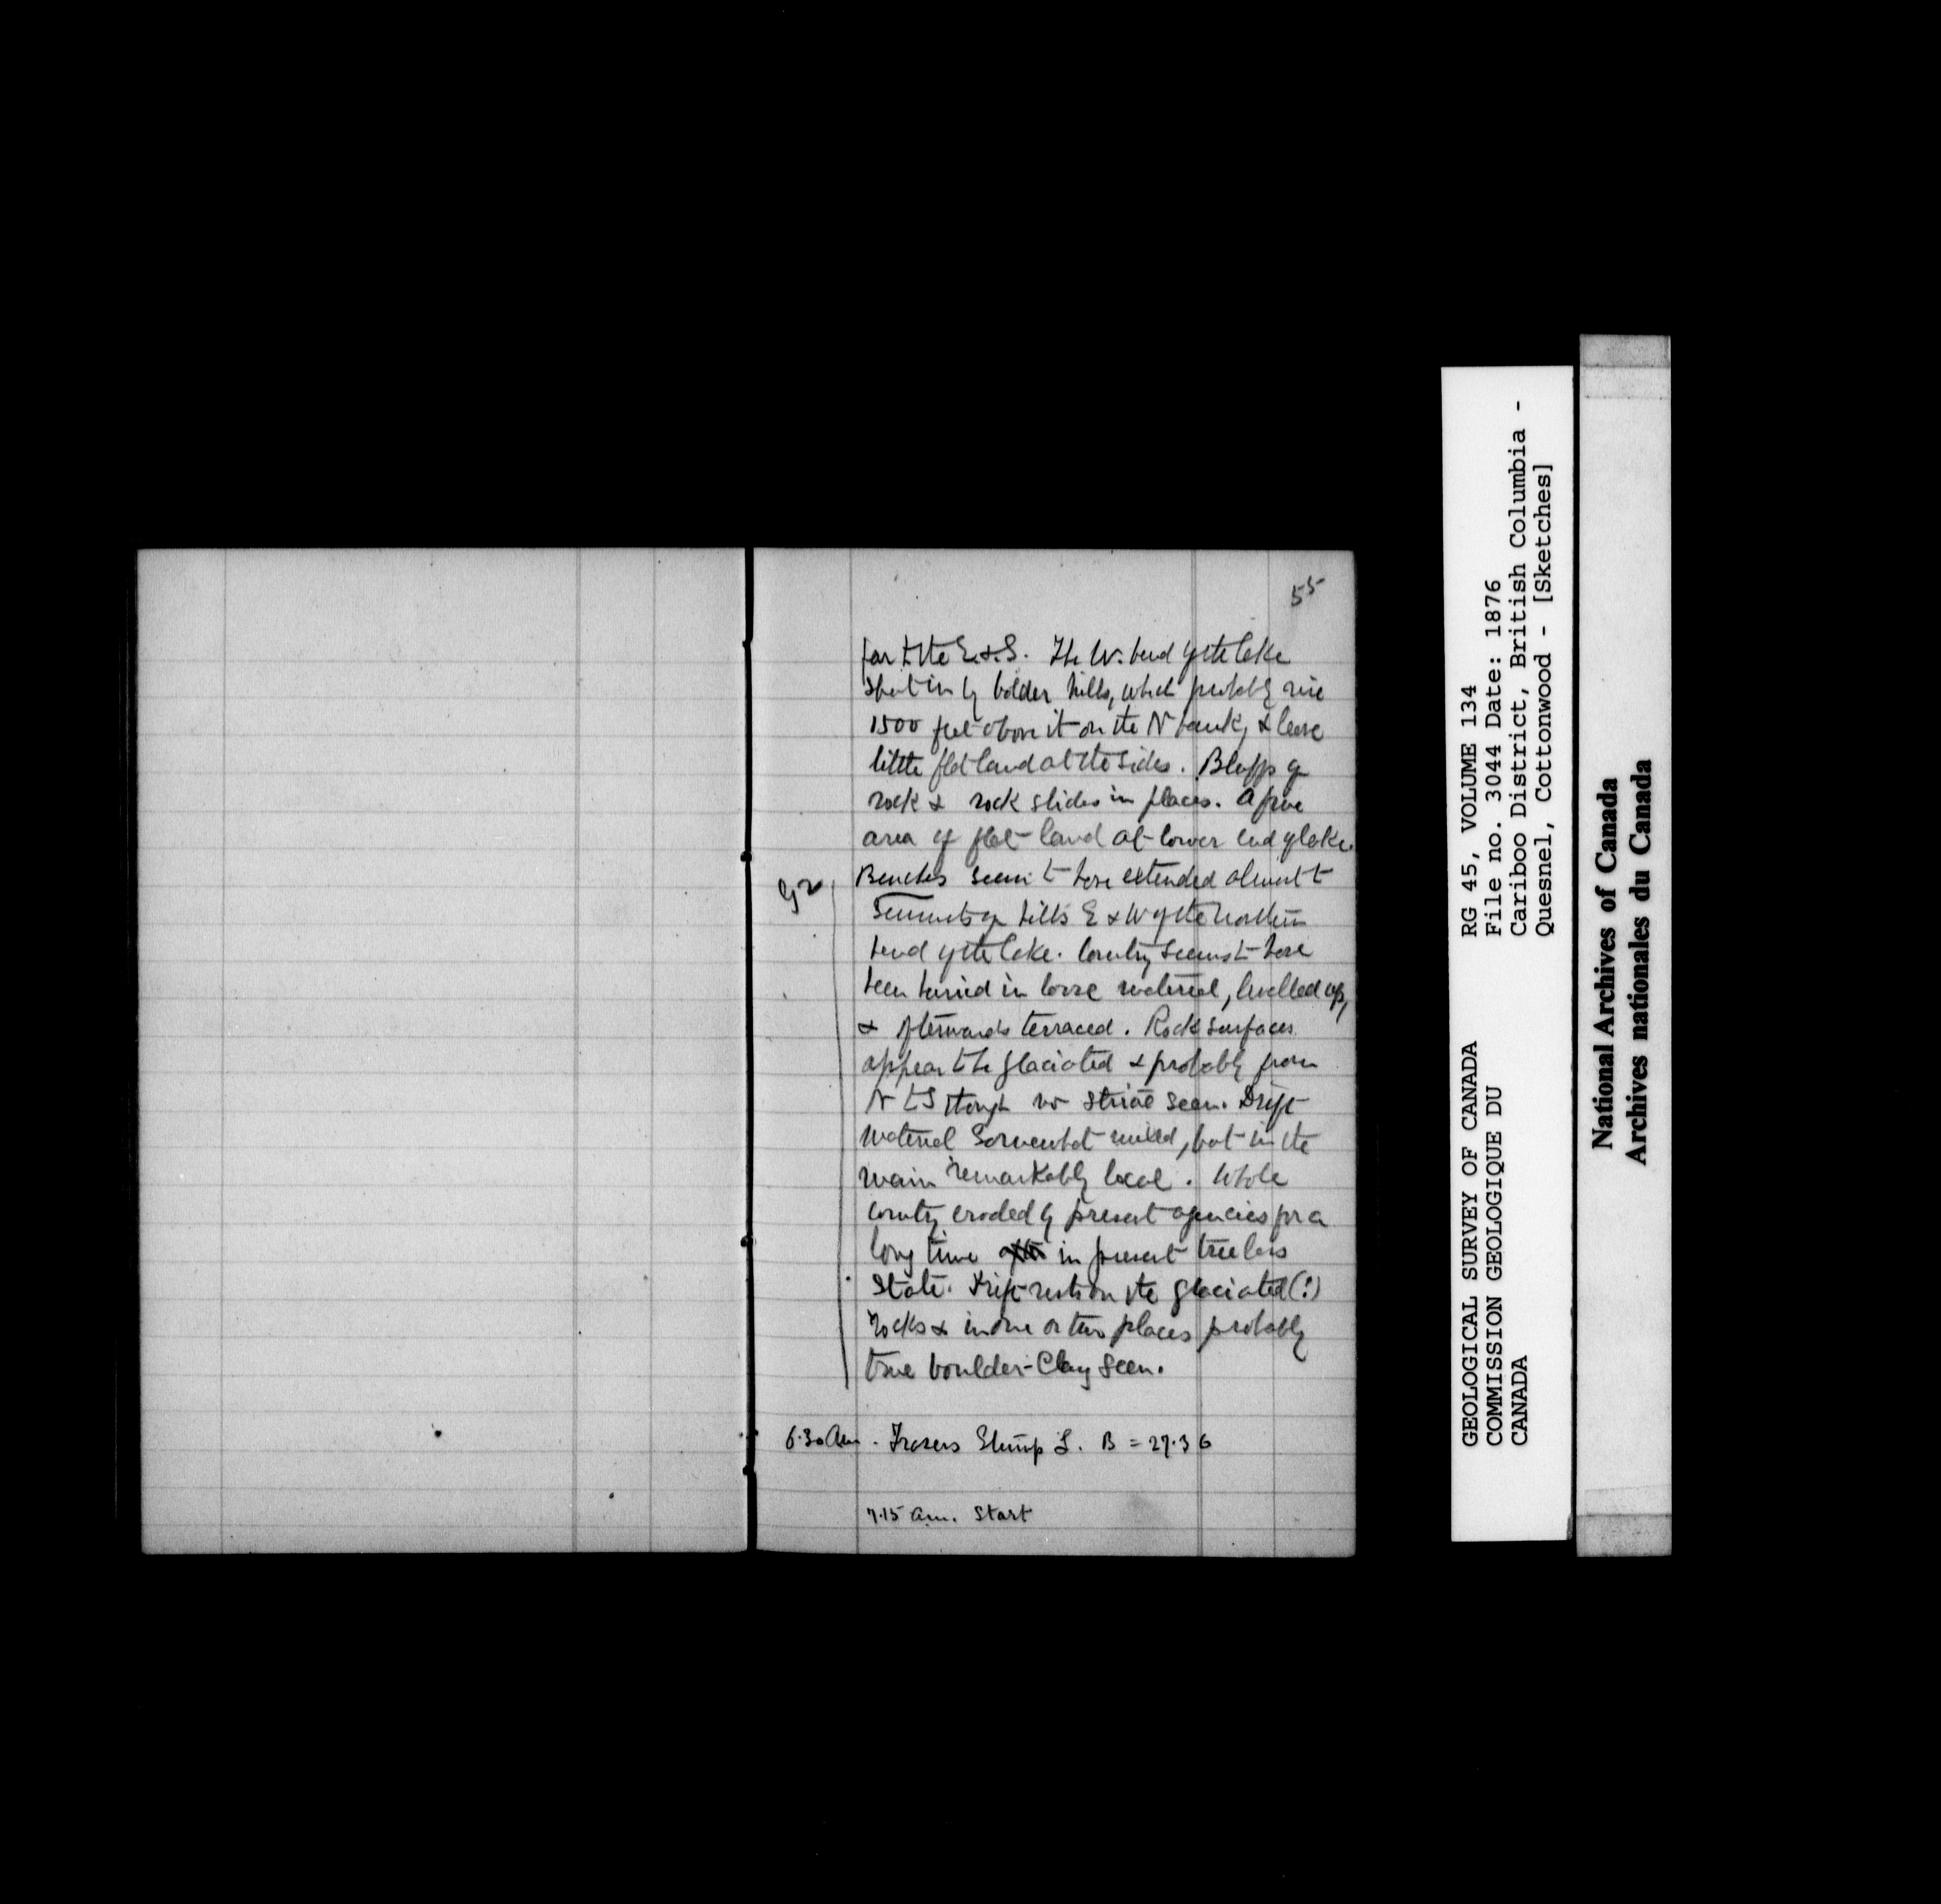 55
far to the E. & S. The W. bend of the lake
shut in by bolder hills, which probably rise
1500 feet above it on the N bank, & leave
little flat land at the sides. Bluffs of
rock & rock slides in places. A fine
area of flat land at lower end of lake.
Benches seem to have extended almost to
summits of hills E & W of the northern
bend of the lake. Country seems to have
been buried in loose material, levelled up,
& afterwards terraced. Rock surfaces
appear to be glaciated & probably from
N to S though no striae seen. Drift
material somewhat mixed, but in the
main remarkably local. Whole
country eroded by present agencies for a
long time in present treeless
state. Drift rests on the glaciated (?)
rocks & in one or two places probably
true boulder-clay seen.
6.30 am. Frasers Stump L. B = 27.36
7.15 am. Start
GEOLOGICAL SURVEY OF CANADA
COMMISSION GEOLOGIQUE DU
CANADA
RG 45, VOLUME 134
File no. 3044 Date: 1876
Cariboo District, British Columbia -
Quesnel, Cottonwood - [Sketches]
National Archives of Canada
Archives nationales du Canada